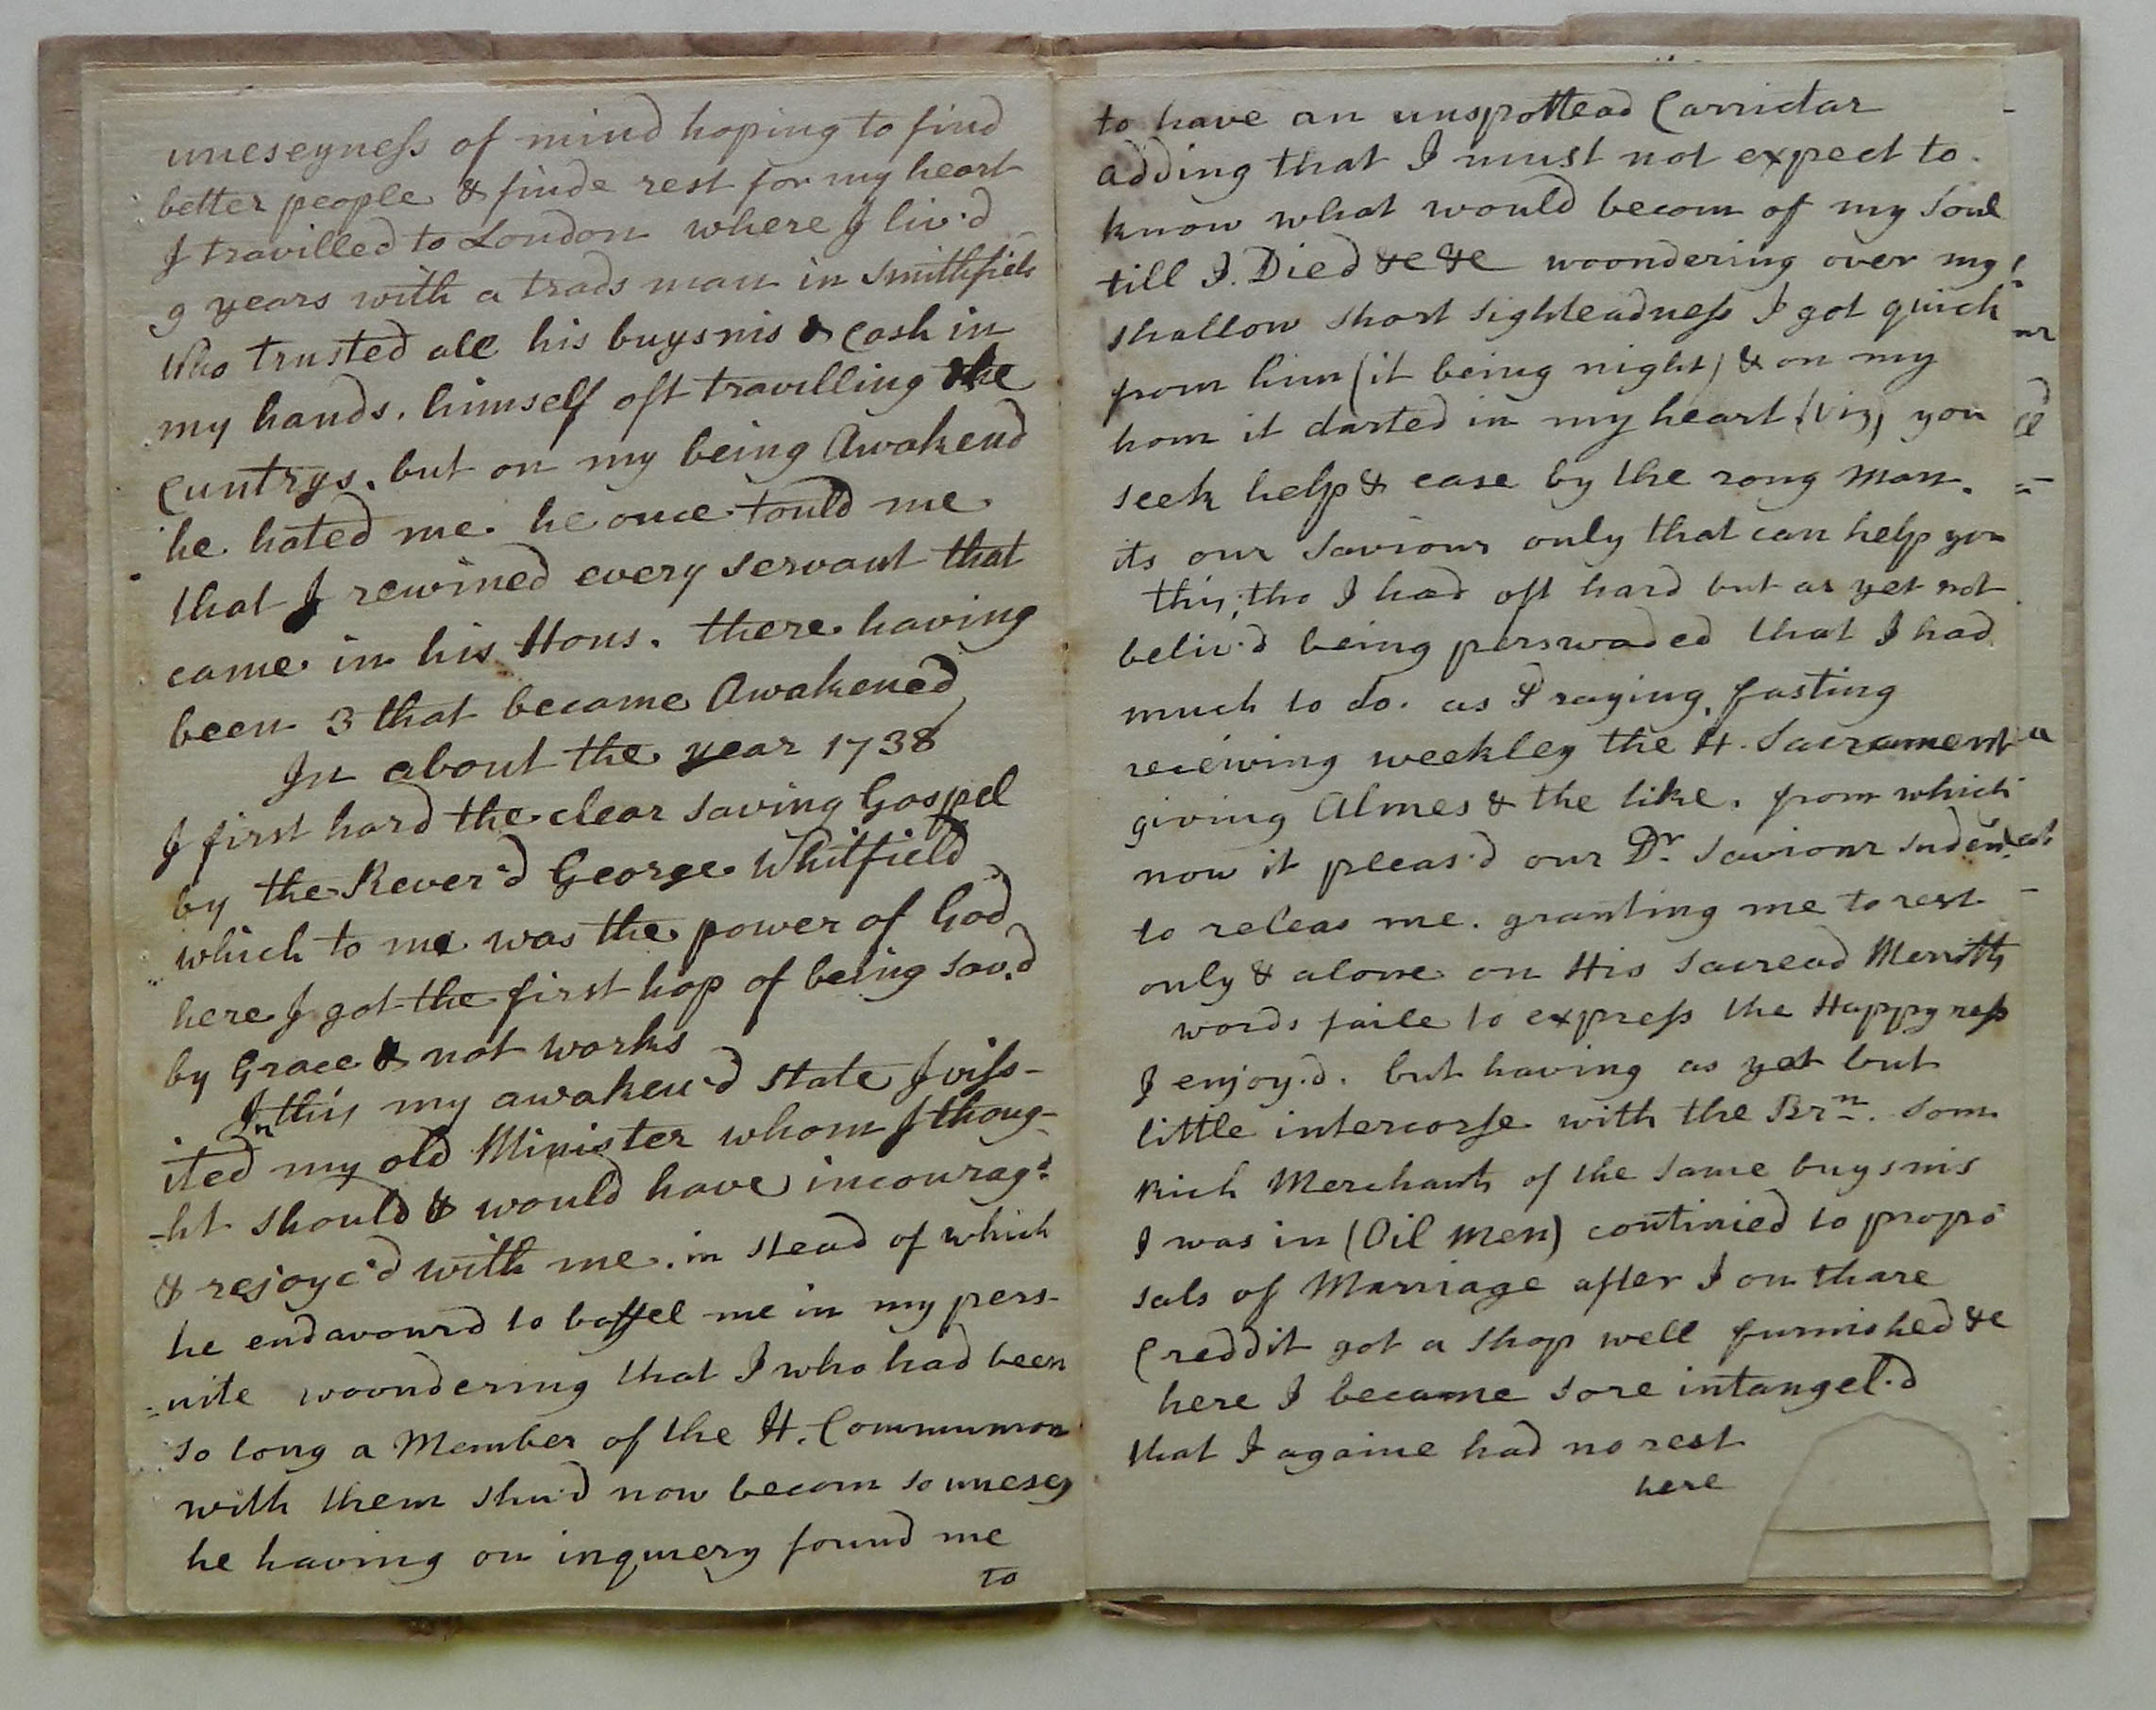 uneseyness of mind hoping to find
better people & finde rest for my heart
I travilled to London where I liv'd
9 years with a trads man in Smithfield
Who trusted all his buysnis & Cash in
my hands. himself oft travilling the
Cuntrys. but on my being Awakend
he hated me. he once tould me
that I rewined every servant that
came in his Hous. there having
been 3 that became Awakened
In about the year 1738
I first hard the clear saving Gospel
by the Rever'd George Whitfield
which to me was the power of God
here I got the first hop of being sav.d
by Grace & not works
In this my awaken'd state I viss-
ited my old Minister whom I thoug-
-ht should & would have incourag'd
& rejoyc'd with me. in stead of which
he endavour'd to baffel me in my pers-
=uite woondering that I who had been
so long a Member of the H. Communion
with them shu'd now becom so unesey
he having on inquiery found me
to
to have an unspottead Carrictar
adding that I must not expect to
know what would becom of my Soul
till I. Died &c &c woondering over my
shallow short sighteadness I got quick
from him (it being night) & on my
hom it darted in my heart (viz) you
seek help & ease by the rong man.
its our Saviour only that can help you
this, tho I had oft hard but as yet not
beliv'd being perswaded that I had
much to do. as Praying, fasting
receiving weekley the H. Sacrament
giving Almes & the like. from which
now it pleas'd our Dr. Saviour suden
to releas me. granting me to rest
only & alone on His Sacread Merrits
words faile to express the Happyness
I enjoy.d. but having as yet but
little intercorse with the Brn. som
Rich Merchants of the same buysnis
I was in (Oil Men) continied to propo
sals of Marriage after I on thare
Creddit got a shop well furnished &c
here I became sore intangel.d
that I againe had no rest
here